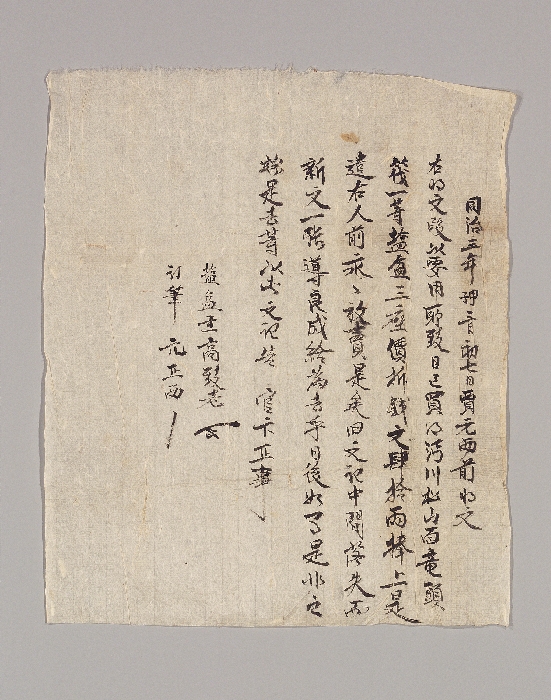 同治三年 二月初七日 賈元西前明文
右明文段以要用所致自己買得沔川松山面竜頭
筏一等鹽盆三座價折錢文肆拾兩捧上是
遣右人前永永放賣是矣旧文記中間落失故
新文一張導良成給為去乎日後如有是非之
弊是去等以此文記告官卞正事
鹽盆主 高致老
訂筆 元正西